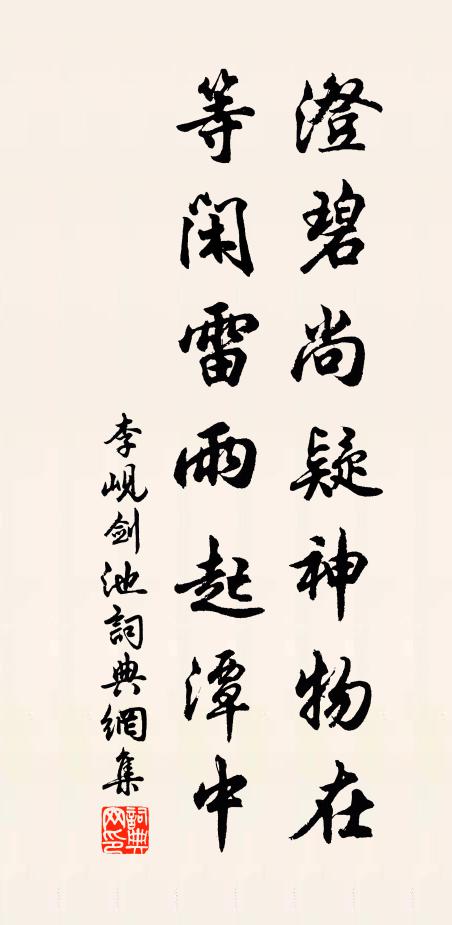 澄碧尚疑神物在
等闲雷雨起潭中
李峴剑池詞典網集
詞典網印